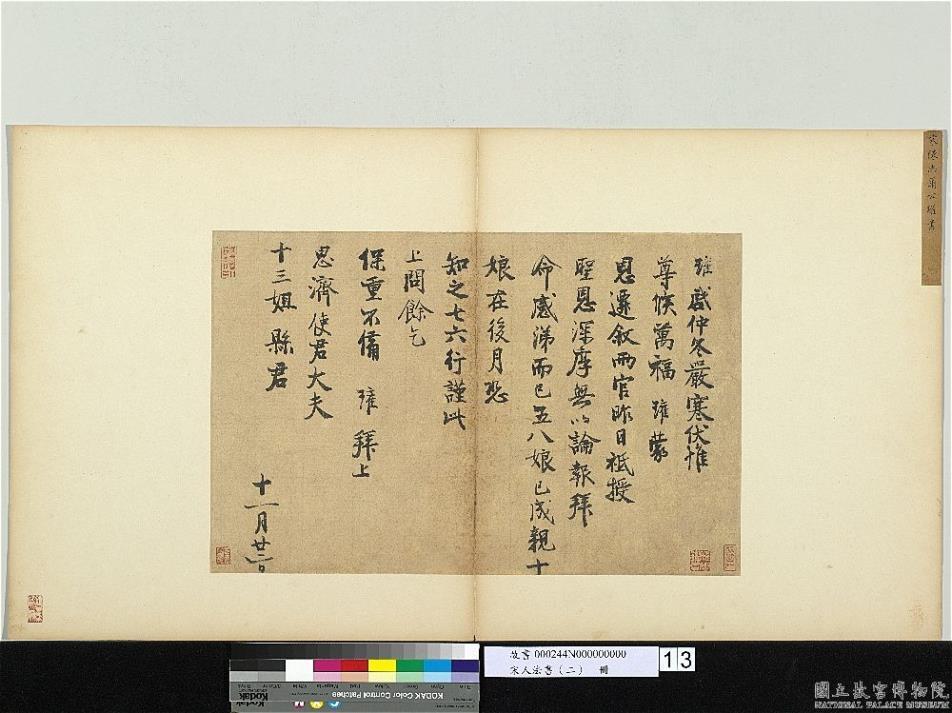 啟仲冬嚴寒伏惟
尊候萬福 蒙
恩遷敘兩官昨日祗授
聖恩深厚無以論報拜
命感涕而已五八娘已成親十
娘在後月恐
知之七六行謹此
上問餘乞
保重不備 拜上
思濟使君大夫
十三姐縣君
十一月廿二日
故書 000244N000000000
宋人法書(二) 冊
13
Kodak
KODAK Color Control Patches
國立故宮博物院
NATIONAL PALACE MUSEUM